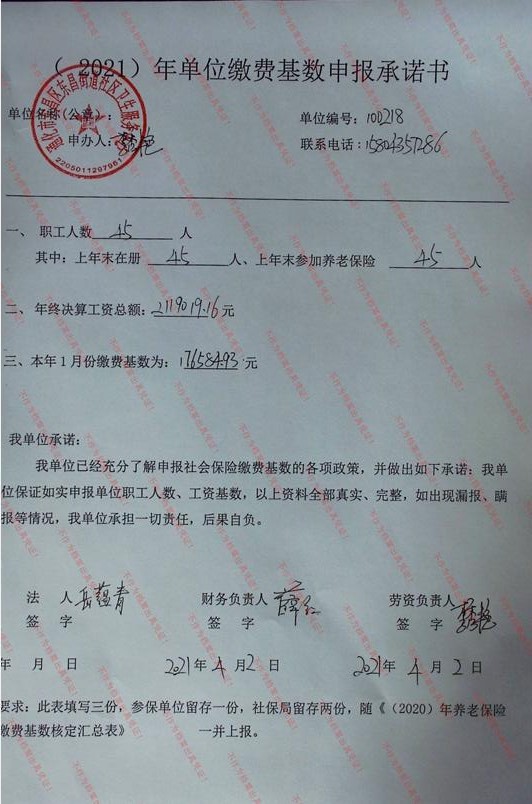 （ 2021）年单位缴费基数申报承诺书
单位名称(公章)：
单位编号：100218
申办人：
联系电话：15804357286
2205011297961
一、 职工人数 45 人
其中：上年末在册 45 人、上年末参加养老保险 45 人
二、 年终决算工资总额：2119019.16元
三、本年1月份缴费基数为：176584.93元
我单位承诺：
我单位已经充分了解申报社会保险缴费基数的各项政策，并做出如下承诺：我单
位保证如实申报单位职工人数、工资基数，以上资料全部真实、完整，如出现漏报、瞒
报等情况，我单位承担一切责任，后果自负。
法 人 岳蕴青 财务负责人 薛红 劳资负责人
签 字 签 字 签 字
年 月 日 2021年 4 月2 日 2021年 4 月 2 日
要求：此表填写三份，参保单位留存一份，社保局留存两份，随《（2020）年养老保险
缴费基数核定汇总表》 一并上报。